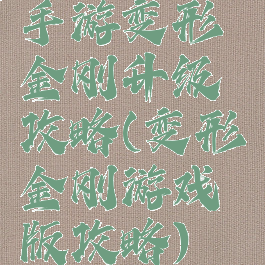 手游变形
金刚升级
攻略(变形
金刚游戏
版攻略)